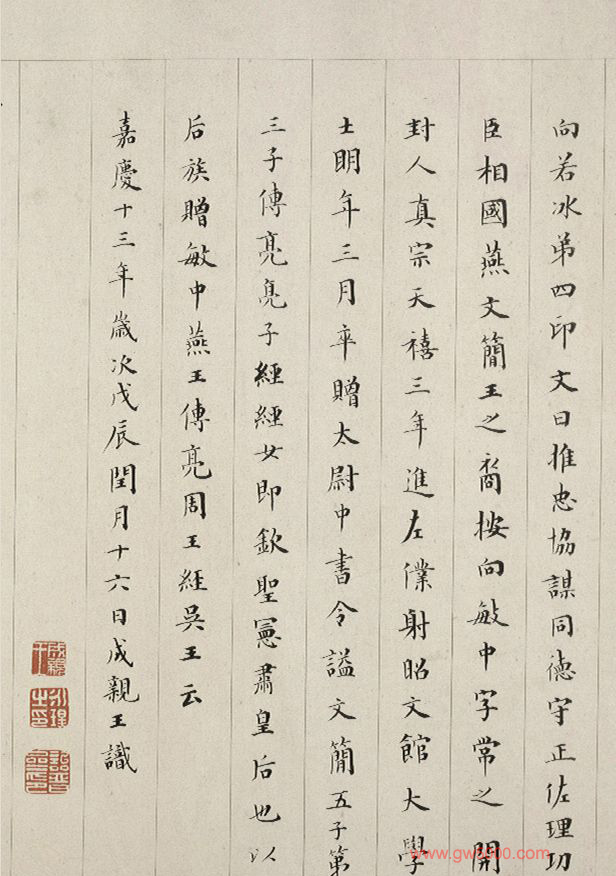 向若冰弟四印文曰推忠協謀同德守正佐理功
臣相國燕文簡王之裔按向敏中字常之開
封人真宗天禧三年進左僕射昭文館大學
士明年三月卒贈太尉中書令謚文簡五子第
三子傳亮亮子經經女即欽聖憲肅皇后也以
后族贈敏中燕王傳亮周王經吳王云
嘉慶十三年歲次戊辰閏月十六日成親王識
成親王
永瑆之印
詒晉齋印
www.gw8000.com